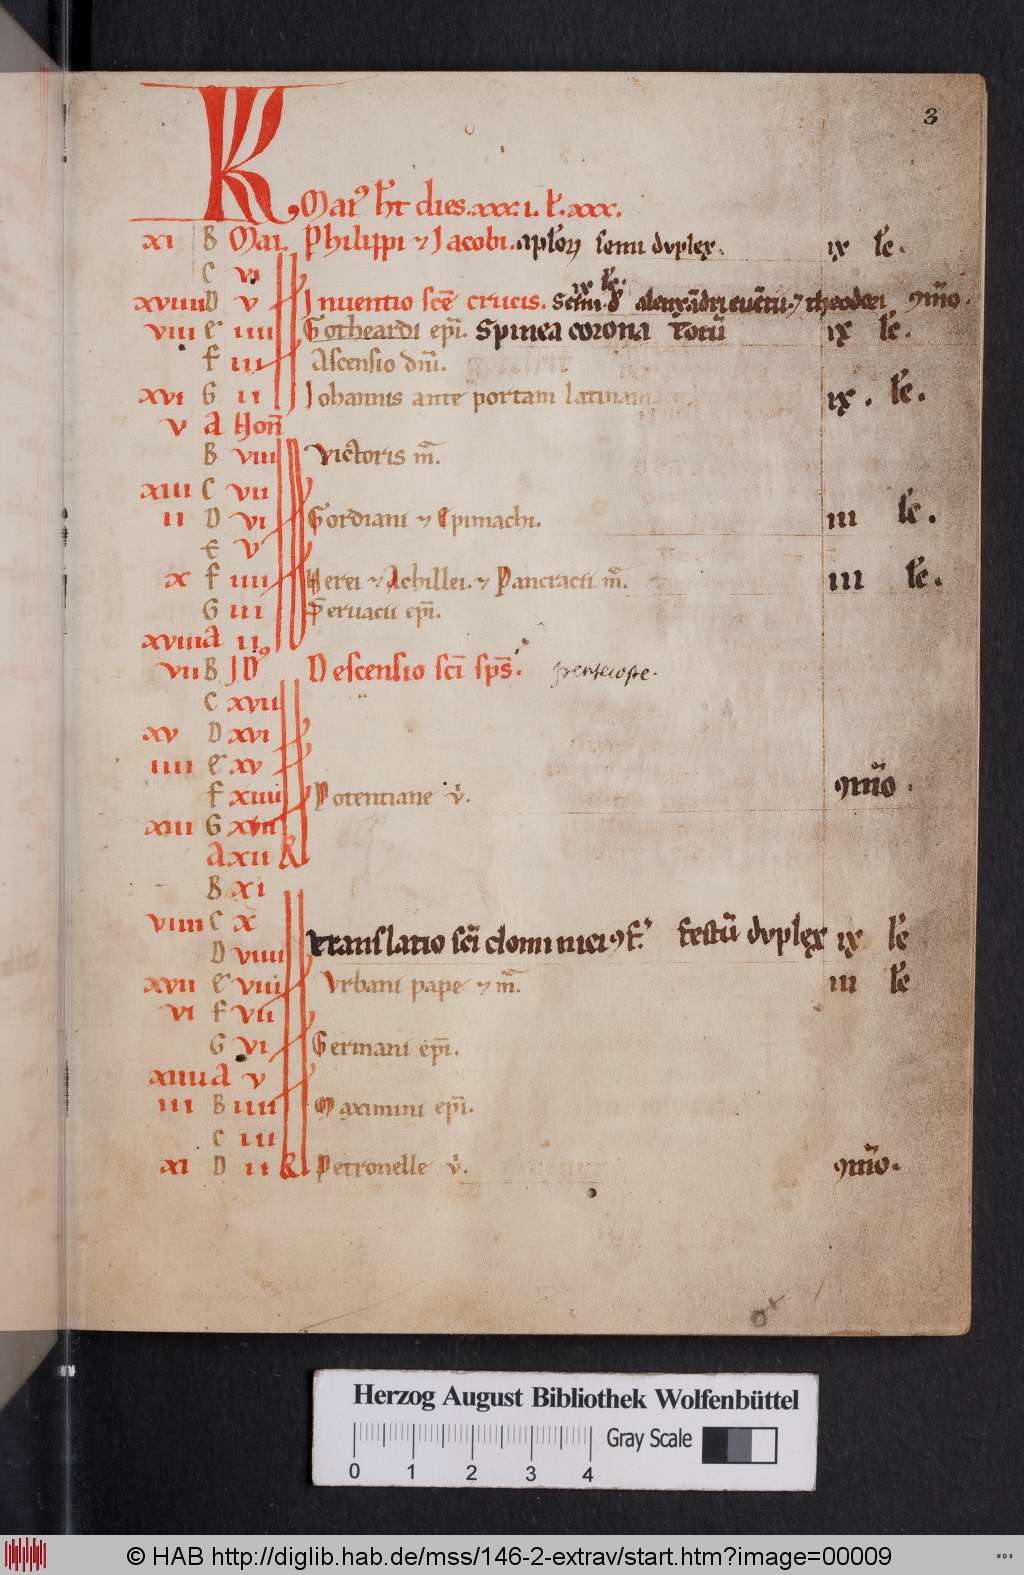 3
KL Mai9 ht dies. xxx. i. ł. xxx.
xi B Mai. Philippi ⁊ Jacobi. aplorꝝ semi dvplex. ix le.
C vi
xviiii D v Inuentio scē crucis. ix le. alexādri euētii ⁊ theodori 9mio.
viii e iiii Gotheardi epī. Spinea corona Totū ix le.
F iii Ascensio dnī.
xvi G ii Iohannis ante portam latinam ix. le.
v A Non
B viii Victoris m̄.
xiii C vii
ii D vi Gordiani ⁊ Epimachi. iii le.
E v
x F iiii Nerei ⁊ Achillei. ⁊ Pancracii m̄. iii le.
G iii Seruacii epī.
xviii A ii
vii B JD9 Descensio scī sps̄. pentecoste.
C xvii
xv D xvi
iiii e xv
F xiiii Potentiane v̄. 9mio.
xiii G xiii
A xii
B xi
viiii C x
D viiii Translatio scī dominici 9f. festū dvplex ix le
xvii e viii Vrbani pape ⁊ m̄. iii le
vi F vii
G vi Germani epī.
xiiii A v
iii B iiii Maximini epī.
C iii
xi D ii Petronelle v̄. 9mio.
Herzog August Bibliothek Wolfenbüttel
Gray Scale
0 1 2 3 4
© HAB http://diglib.hab.de/mss/146-2-extrav/start.htm?image=00009